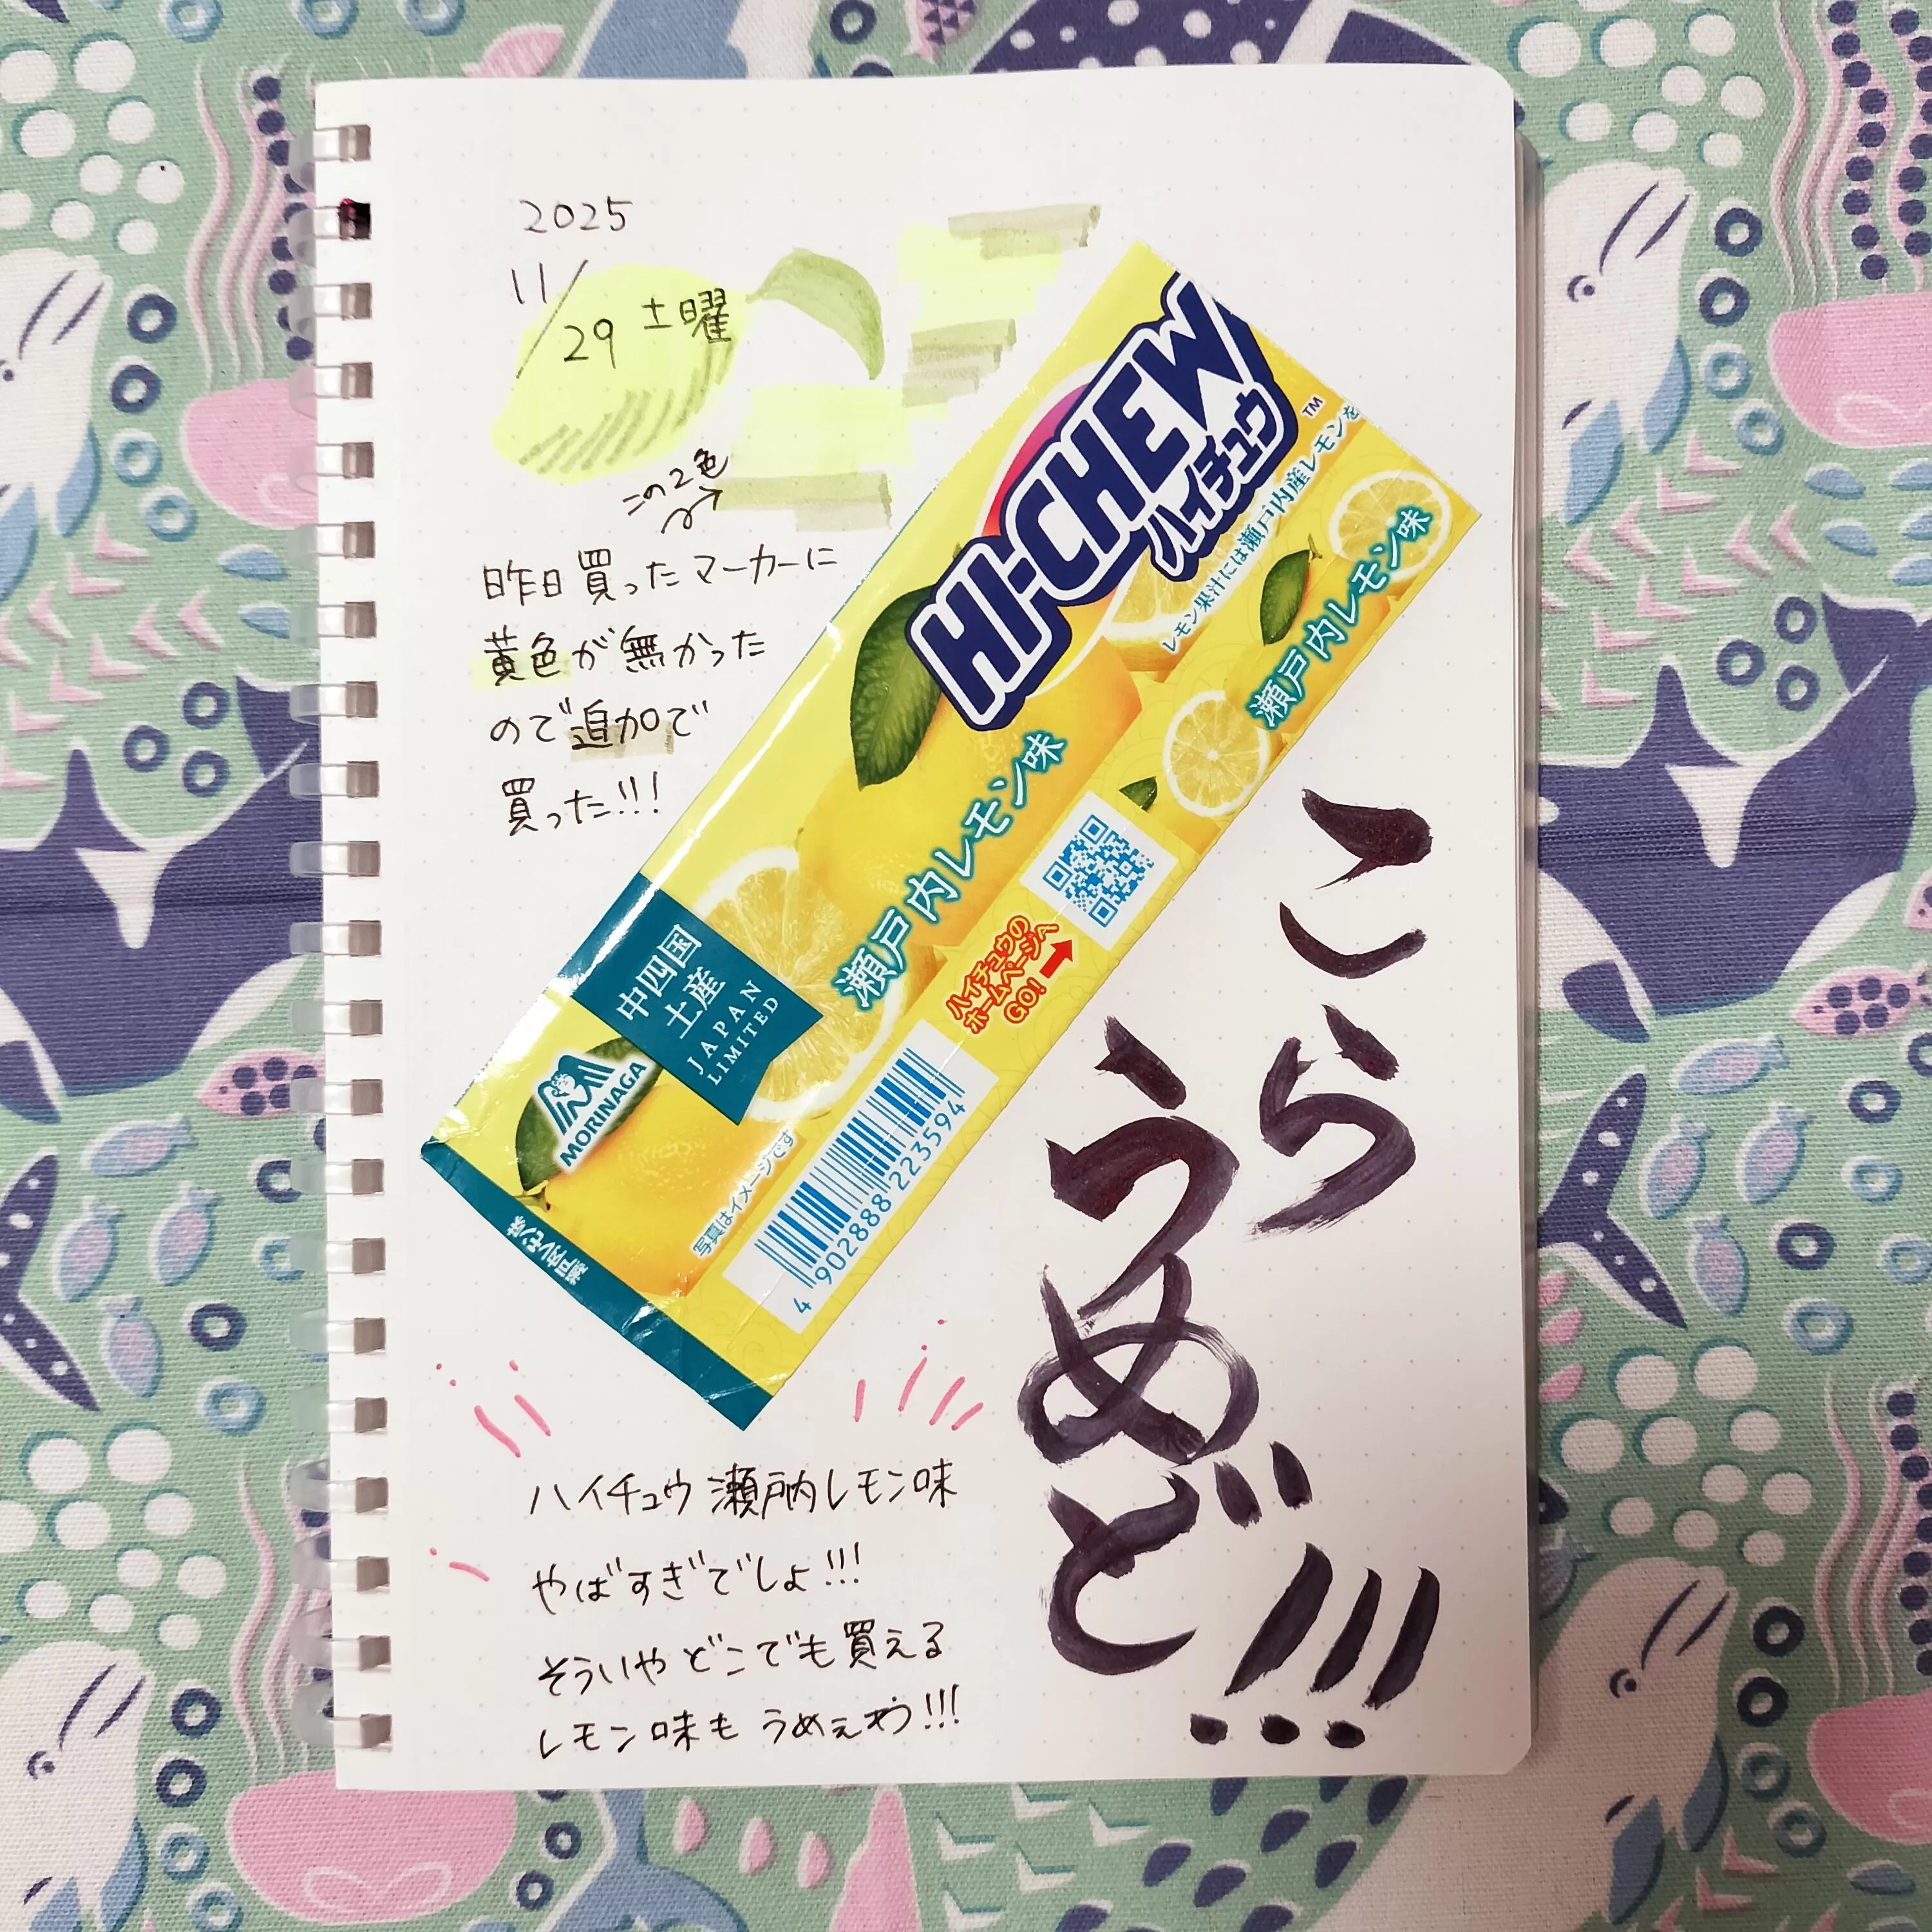 2025
11/29 土曜
この2色
昨日買ったマーカーに
黄色が無かった
ので追加で
買った!!!
HI-CHEW
TM
ハイチュウ
レモン果汁には瀬戸内産レモンを
瀬戸内レモン味
瀬戸内レモン味
中四国
土産
JAPAN
LIMITED
MORINAGA
ハイチュウの
ホームページへ
GO!
写真はイメージです
4 902888 223594
こら
うめど!!!
ハイチュウ 瀬戸内レモン味
やばすぎでしょ!!!
そういや どこでも買える
レモン味も うめぇわう!!!